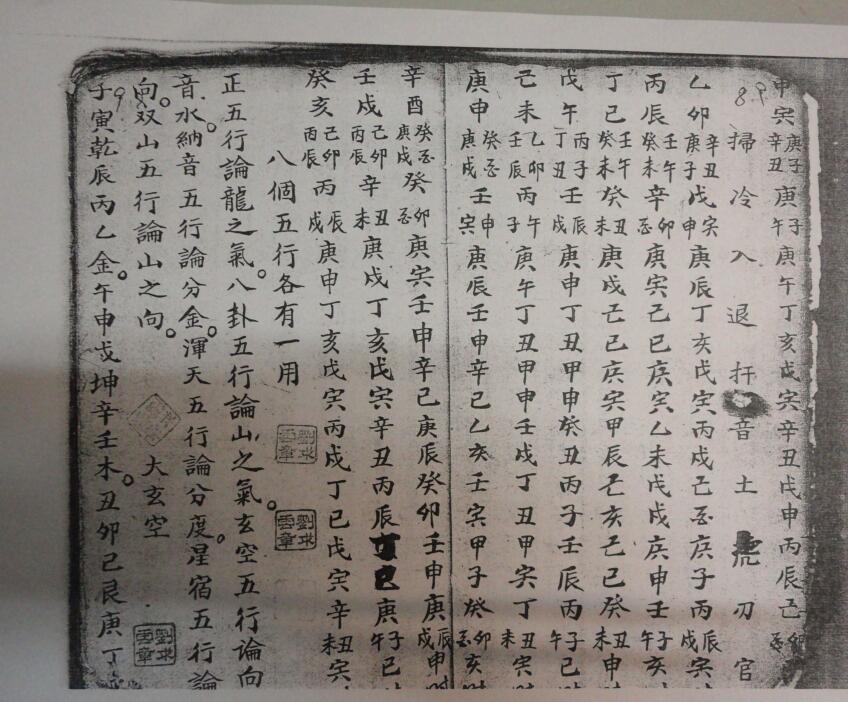 申寅庚子辛丑庚子午庚午丁亥戊寅辛丑戊申丙辰己卯酉
89
掃冷入退扞音土虎刃官
乙卯辛丑庚子戊寅申庚辰丁亥戊寅丙戌己酉庚子丙辰戌寅
丙辰壬午癸未辛卯酉庚寅己巳庚寅乙未戊戌庚申壬子午亥
丁巳壬午癸未癸丑未庚戌己巳庚寅甲辰己亥己巳癸丑未申
戊午丙子丁丑壬辰戌庚申丁丑甲申癸丑丙子壬辰丙子午巳
己未乙卯壬辰丙午子庚午丁丑甲申壬戌丁丑甲寅丁丑未寅
庚申癸酉庚戌壬申寅庚辰壬申辛巳乙亥壬寅甲子癸卯酉亥
辛酉癸酉庚戌癸卯酉庚寅壬申辛巳庚辰癸卯壬申庚辰戌申
壬戌己卯丙辰辛丑未庚戌丁亥戊寅辛丑丙辰丁巳庚子午巳
癸亥己卯丙辰丙辰戌庚申丁亥戊寅丙戌丁巳戊寅辛丑未寅
八個五行各有一用
正五行論龍之氣。八卦五行論山之氣。玄空五行論向
音水。納音五行論分金。渾天五行論分度。星宿五行論
向。双山五行論山之向。大玄空
90
子寅乾辰丙乙金。午申戌坤辛壬木。丑卯巳艮庚丁